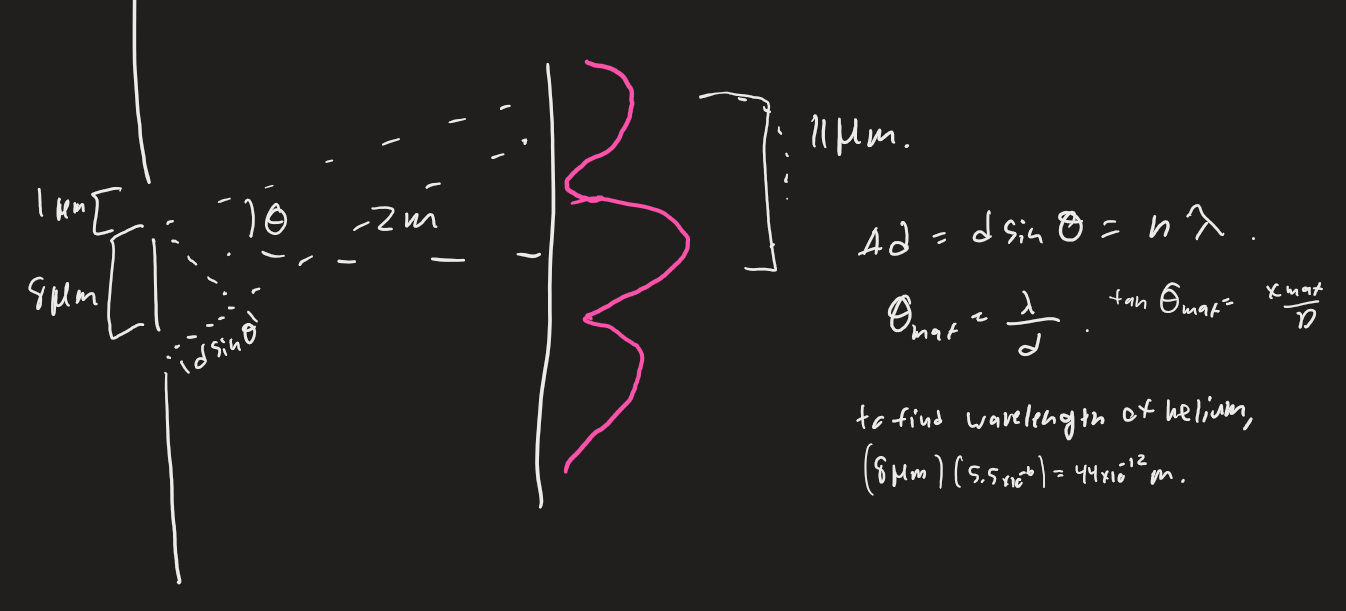 1 μm
8 μm
θ
~2m
d sin θ
11 μm.
Δd = d sin θ = n λ.
θmax = λ/d. tan θmax = xmax/D
to find wavelength of helium,
(8 μm)(5.5×10⁻⁶) = 44×10⁻¹² m.